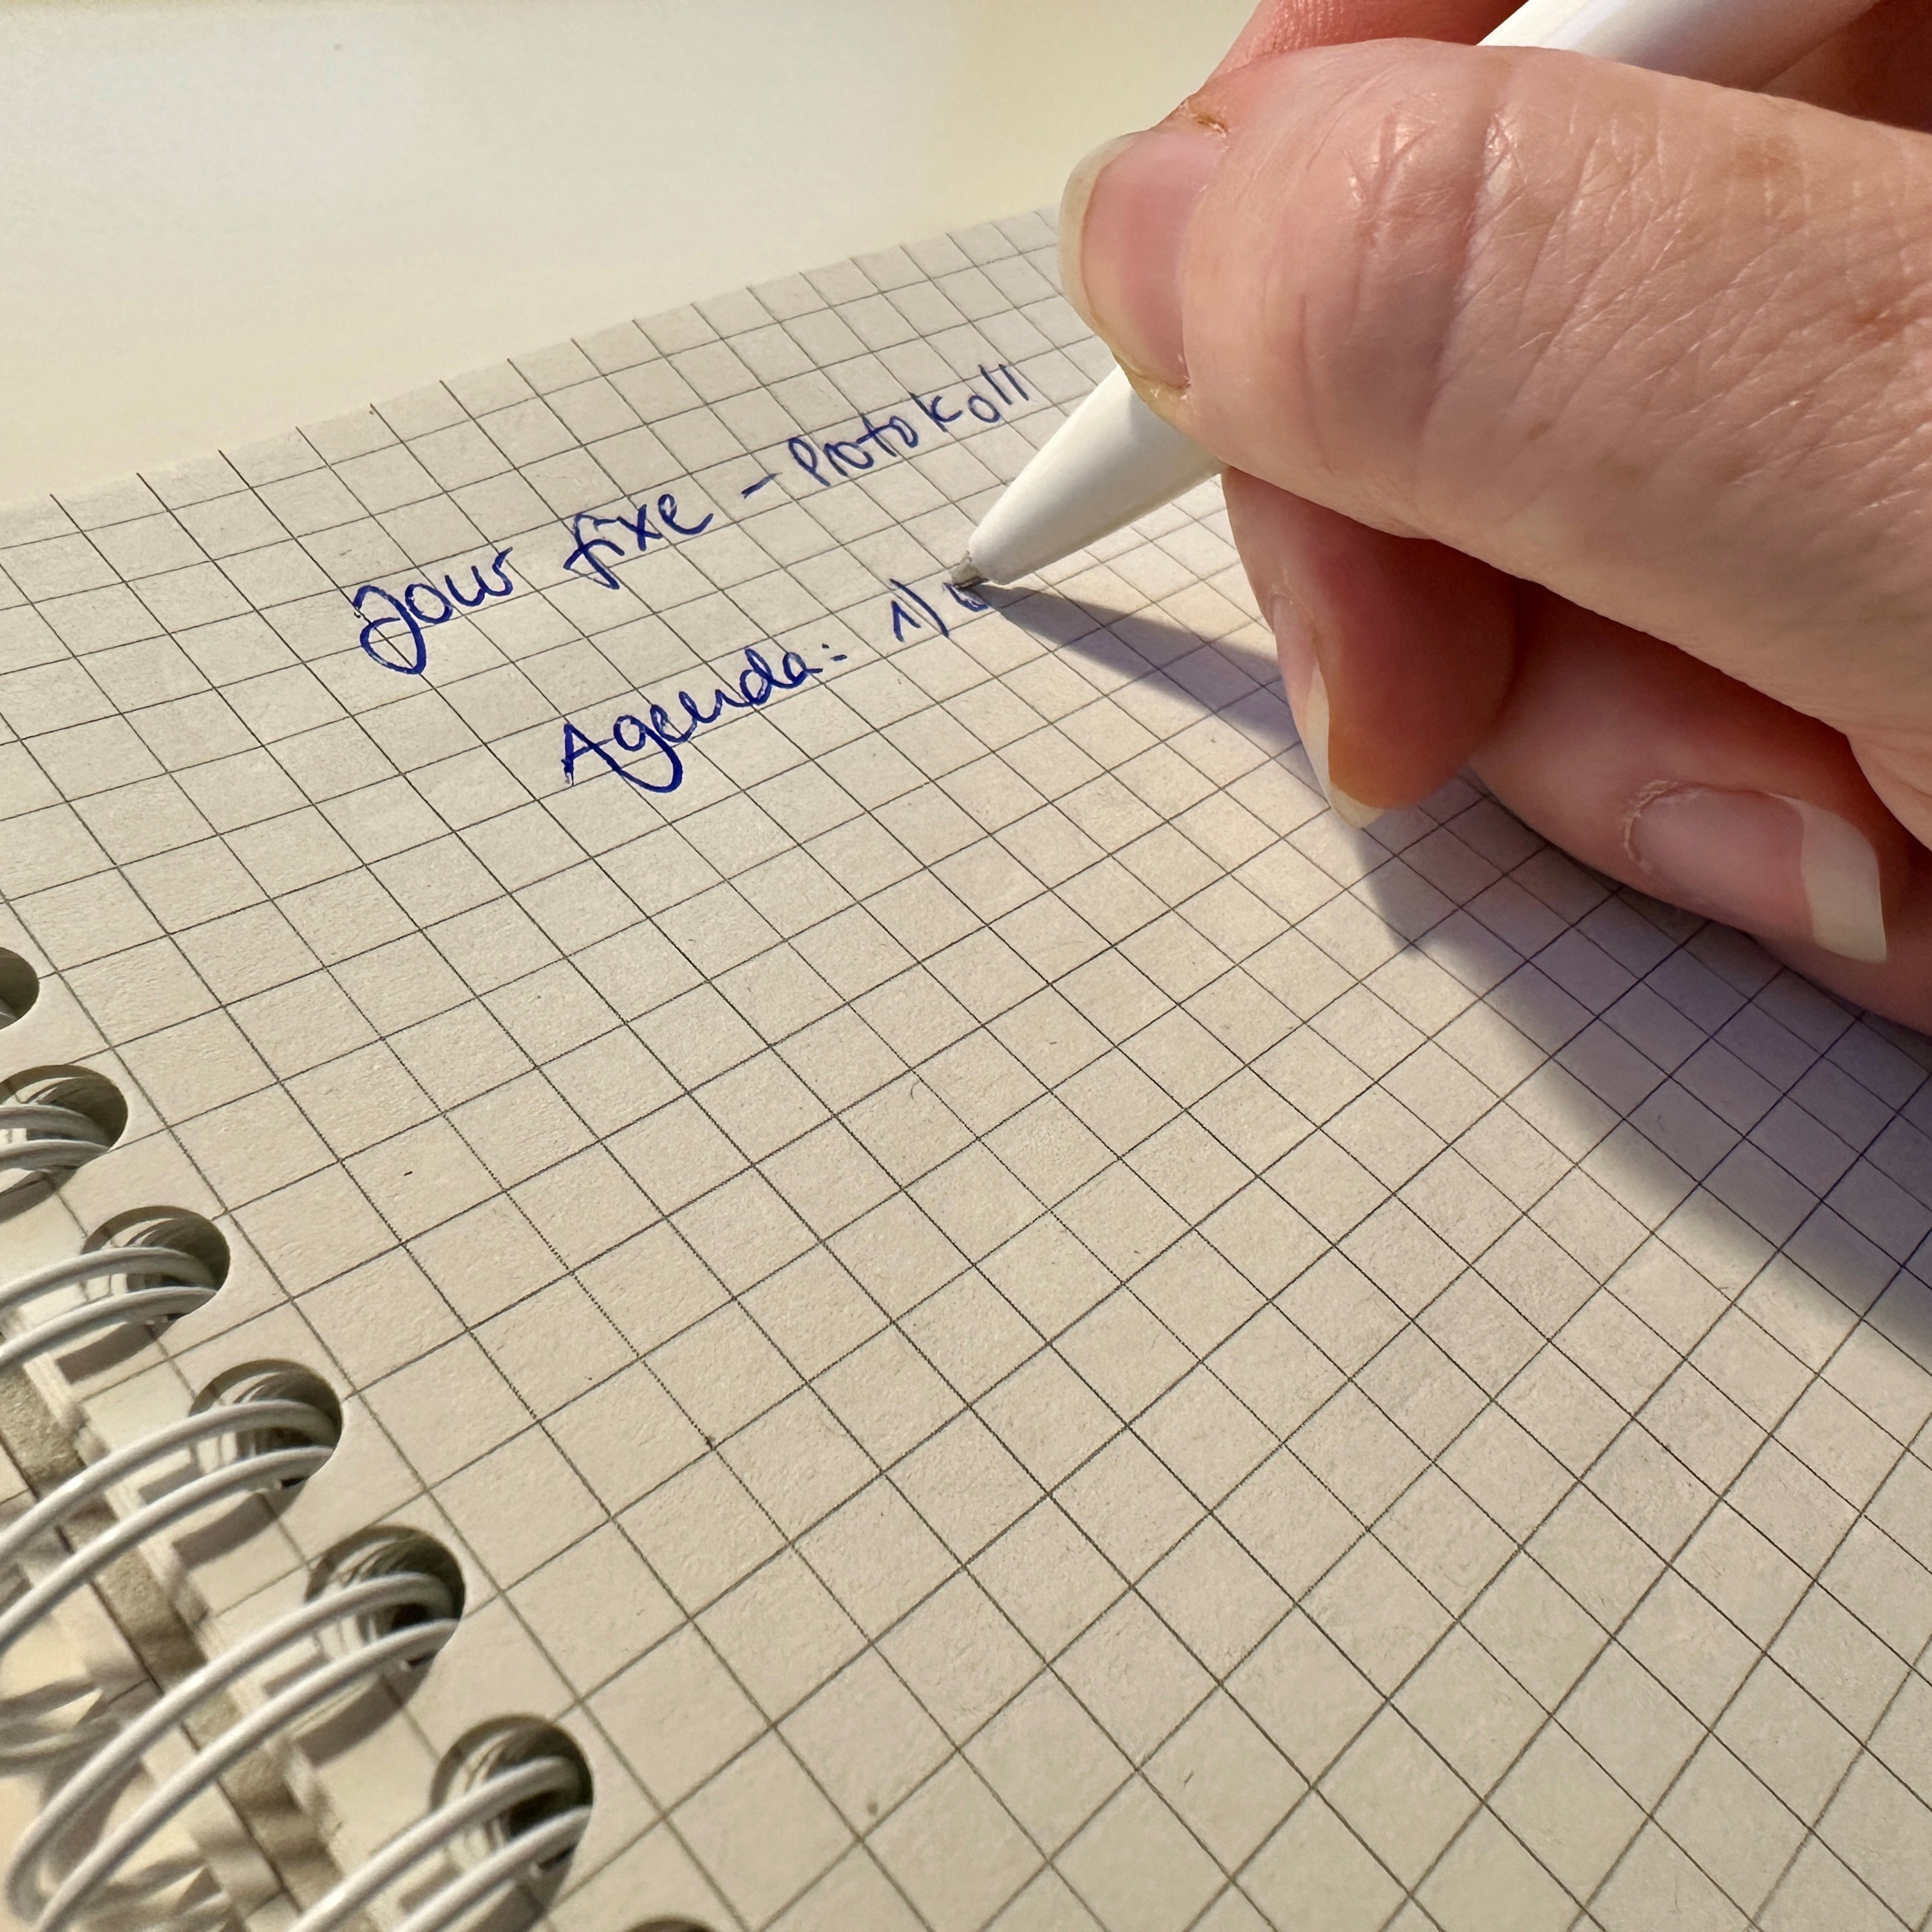 Jour fixe - Protokoll
Agenda: 1)